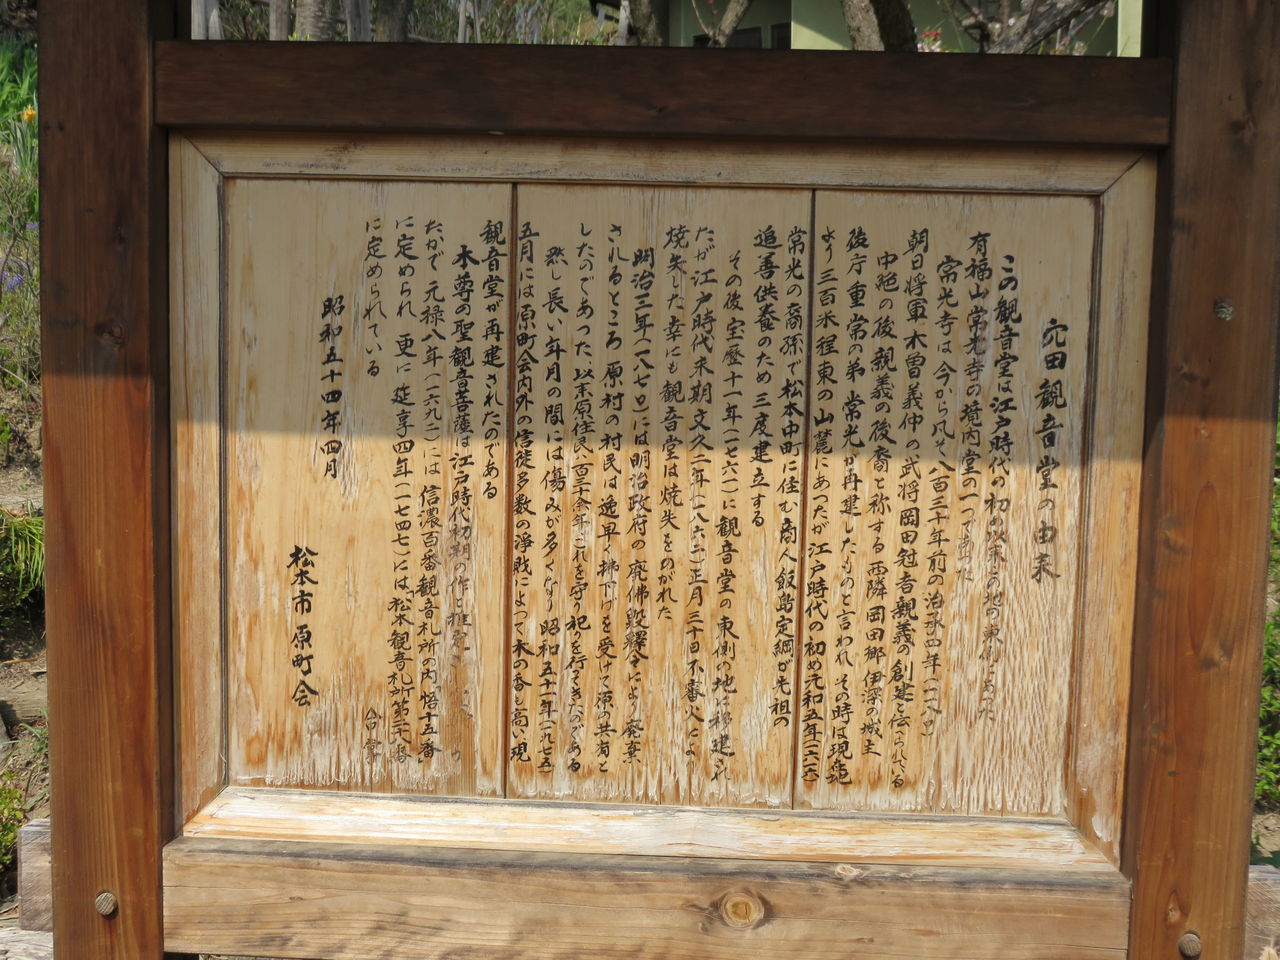 穴田観音堂の由来
この観音堂は江戸時代の初め以来この地の東側にあった
有福山常光寺の境内堂の一つであった
常光寺は今から凡そ八百三十年前の治承四年(一一八〇)
朝日将軍木曽義仲の武将岡田冠者親義の創建と伝へられている
中絶の後親義の後裔と称する西隣岡田郷伊深の城主
後庁重常の弟常光が再建したものと言われその時は現在地
より三百米程東の山麓にあったが江戸時代の初め元和五年(一六一六)
常光の裔孫で松本中町に住む商人飯島定綱が先祖の
追善供養のため三度建立する
その後宝暦十一年(一七六一)に観音堂の東側の地に移建され
たが江戸時代末期文久二年(一八六二)正月三十日不審火によ
焼失した幸にも観音堂は焼失をのがれた
明治三年(一八七〇)には明治政府の廃佛毀釋令により廃棄
されるところ原村の村民は逸早く拂下げを受けて原の共有と
したのであった以来原住民一百三十余年これを守り祀りを行ってきたのである
然し長い年月の間には傷みが多くなり昭和五十年(一九七五)
五月には原町会内外の信徒多数の浄財によって木の香も高い現
観音堂が再建されたのである
本尊の聖観音菩薩は江戸時代初期の作と推定され
たかで元禄八年(一六九二)には信濃百番観音札所の内悟十五番
に定められ更に延享四年(一七四七)には松本観音札所第二十番
に定められている
昭和五十四年四月
松本市原町会